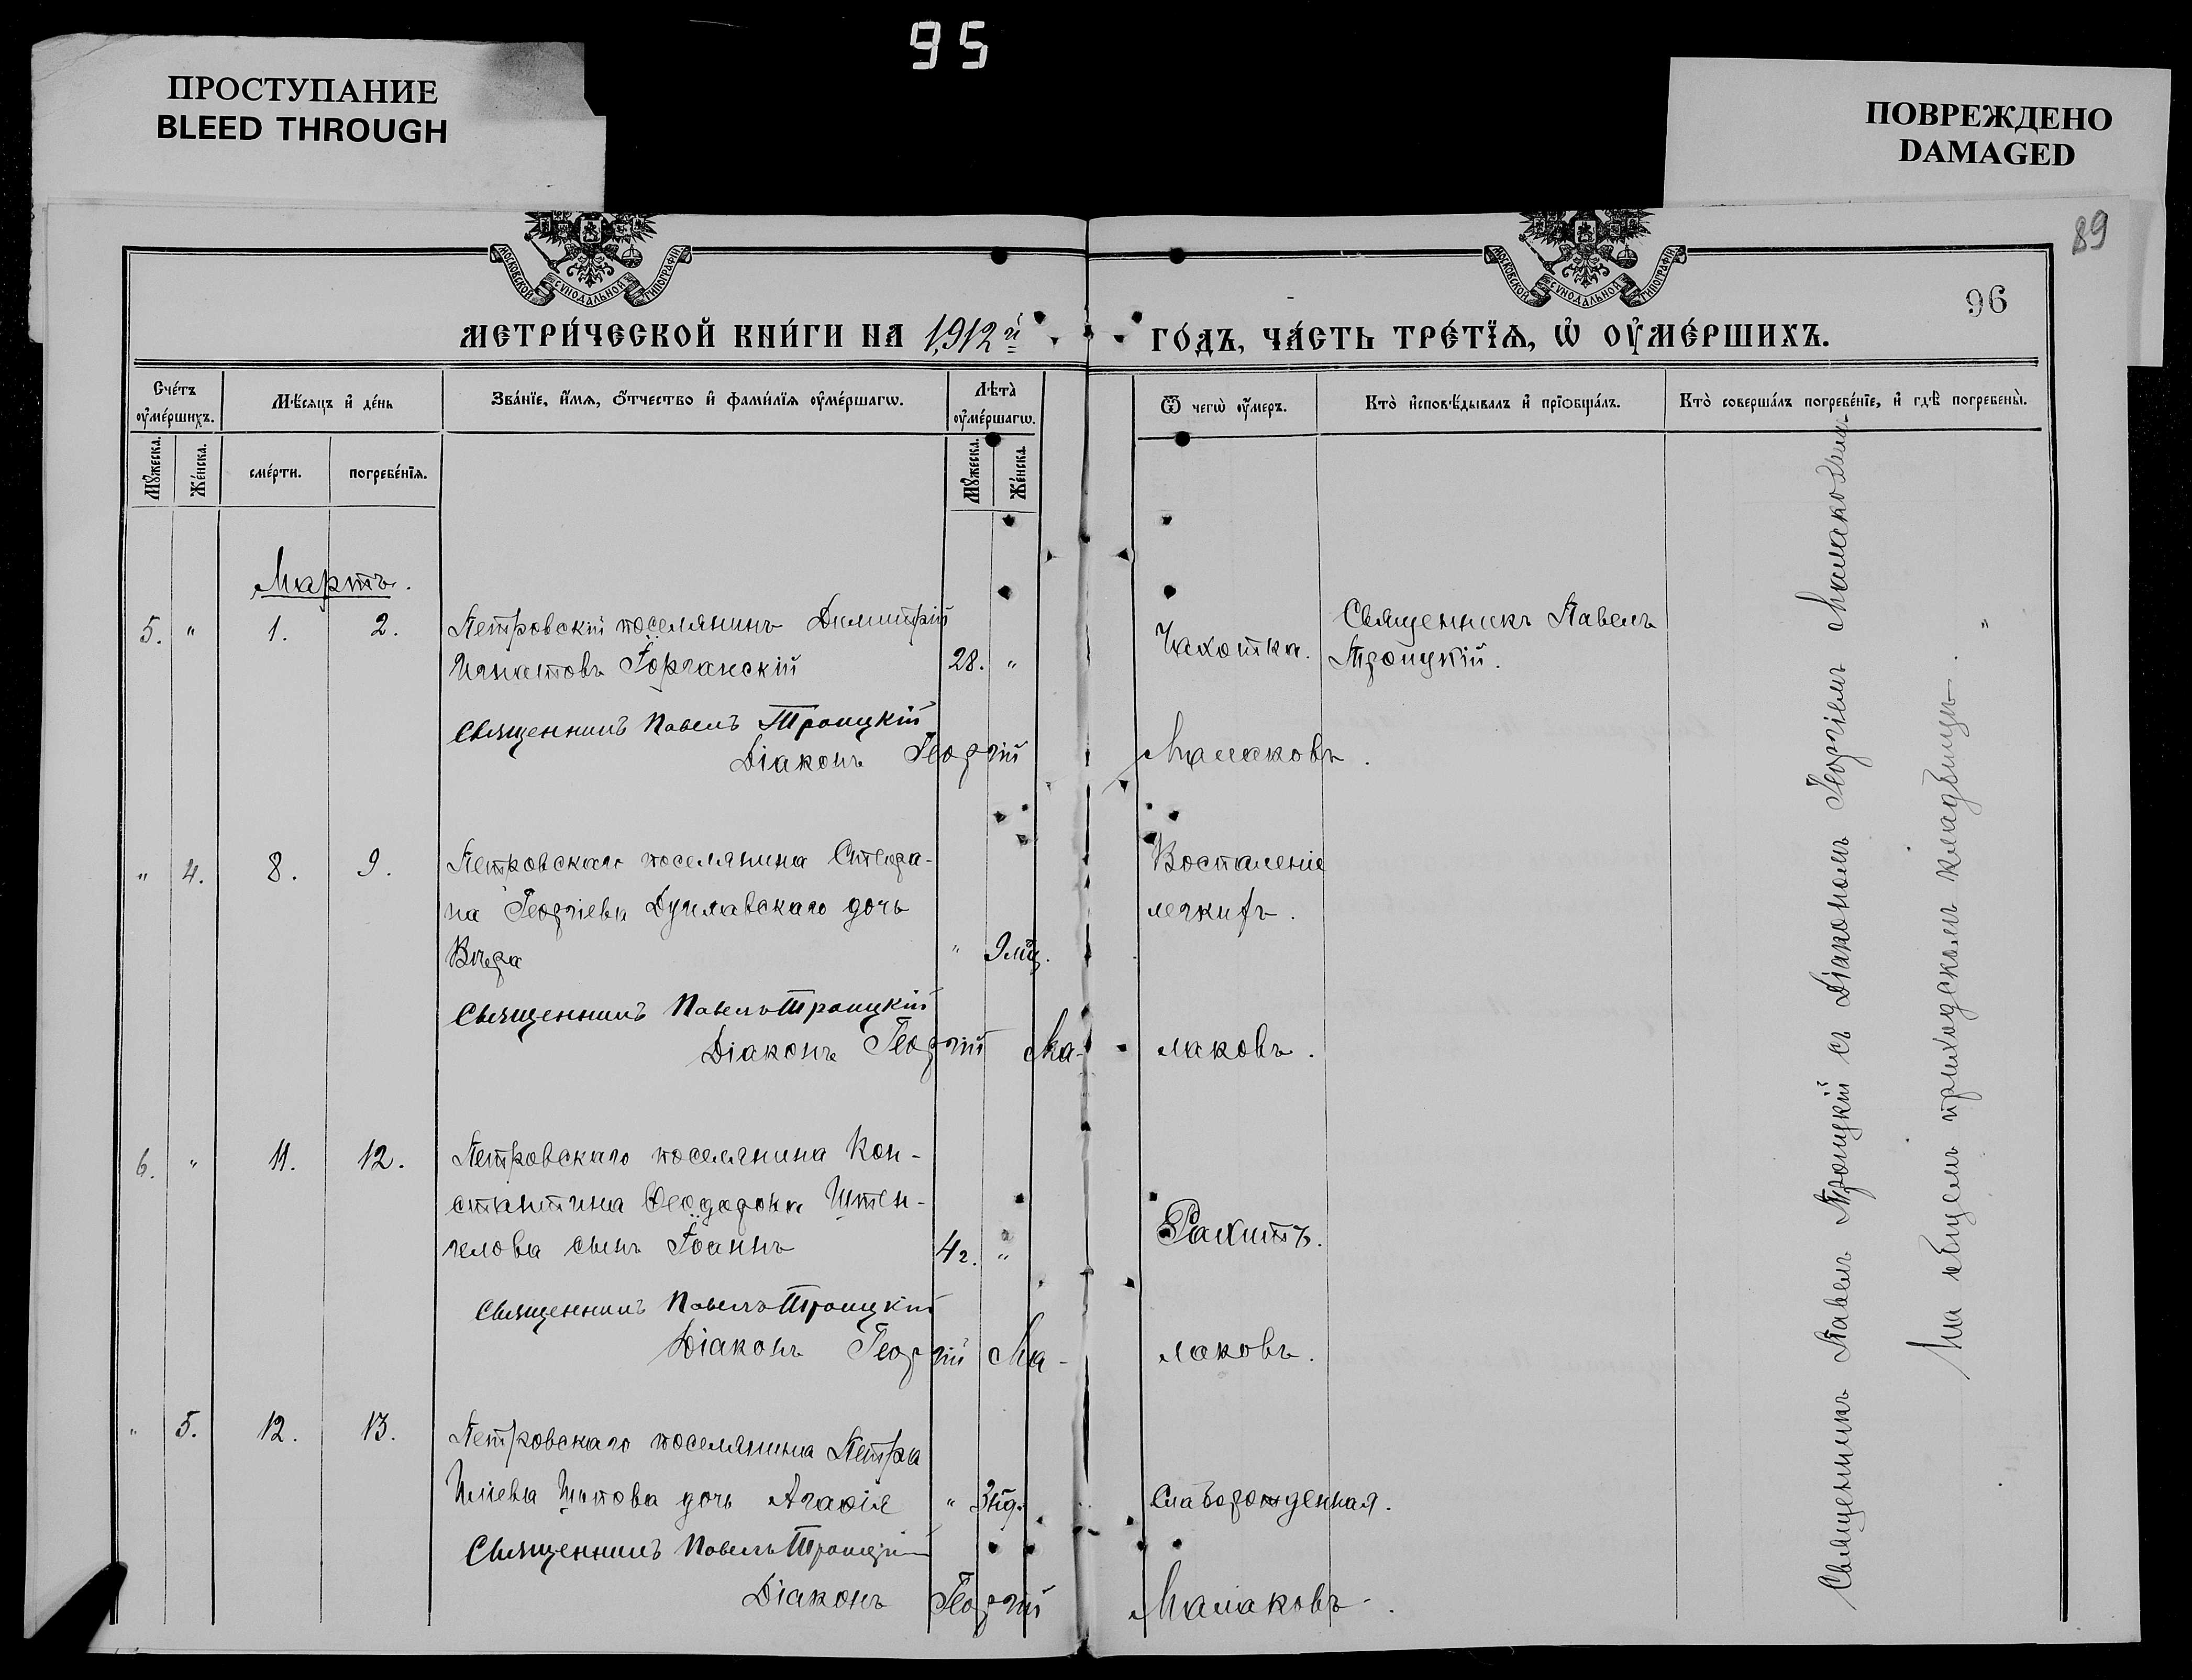 95
ПРОСТУПАНИЕ
BLEED THROUGH
ПОВРЕЖДЕНО
DAMAGED
89
96
МОСКОВСКОЙ СѴНОДАЛЬНОЙ ТИПОГРАФІИ
МОСКОВСКОЙ СѴНОДАЛЬНОЙ ТИПОГРАФІИ
МЕТРИ́ЧЕСКОЙ КНИ́ГИ НА 1912й ГО́ДЪ, ЧА́СТЬ ТРЕ́ТЇѦ, Ѡ҆ ОУ҆МЕ́РШИХЪ.
Сче́тъ оу҆ме́ршихъ.
Мѣ́сѧцъ и҆ де́нь
Зва́нїе, и҆́мѧ, ѻ҆́тчество и҆ фами́лїѧ оу҆ме́ршагѡ.
Лѣта̀ оу҆ме́ршагѡ.
Ѿ чегѡ̀ оу҆́меръ.
Кто̀ и҆сповѣ́дывалъ и҆ прїѻбща́лъ.
Кто̀ соверша́лъ погребе́нїе, и҆ гдѣ̀ погребены̀.
Мꙋ́жеска.
Же́нска.
сме́рти.
погребе́нїѧ.
Мꙋ́жеска.
Же́нска.
Мартъ.
5. " 1. 2. Петровскій поселянинъ Димитрій
Игнатовъ Горганскій 28. " Чахотка. Священникъ Павелъ
Троицкій.
Священникъ Павелъ Троицкій
Діаконъ Георгій Малаковъ.
" 4. 8. 9. Петровскаго поселянина Стефа-
на Георгіева Дунлавскаго дочь
Вѣра " 9 мц. Воспаленіе
легкихъ.
Священникъ Павелъ Троицкій
Діаконъ Георгій Ма-лаковъ.
6. " 11. 12. Петровскаго поселянина Кон-
стантина Ѳеодорова Штен-
гелова сынъ Іоаннъ 4 г. " Рахитъ.
Священникъ Павелъ Троицкій
Діаконъ Георгій Ма-лаковъ.
" 5. 12. 13. Петровскаго поселянина Петра
Иліева Шопова дочь Агафія " 3 нд. Слаборожденная.
Священникъ Павелъ Троицкій
Діаконъ Георгій Малаковъ.
Священникъ Павелъ Троицкій съ Діакономъ Георгіемъ Малаковымъ
На общемъ приходскомъ кладбищѣ.